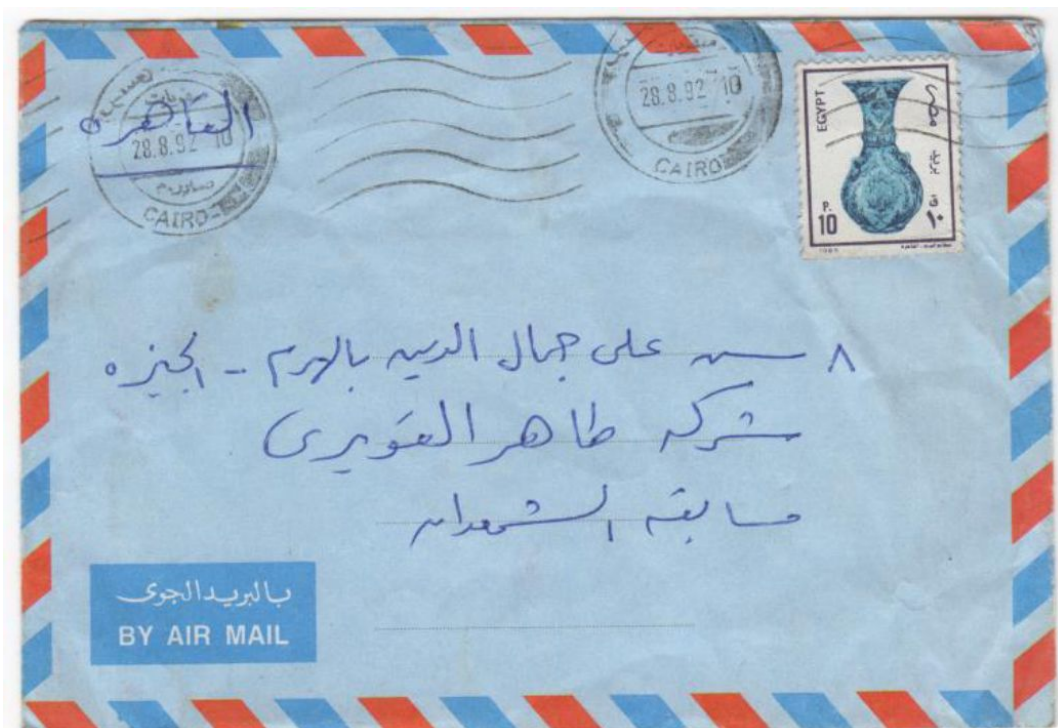 القاهرة
28.8.92 10
CAIRO
28.8.92 10
CAIRO
EGYPT
مصر
بريد
P.
10
ق
١٠
1989
٨ ش على جمال الدين بالهرم - الجيزه
شركه طاهر القويرى
مسابقه الشمعدان
بالبريد الجوى
BY AIR MAIL